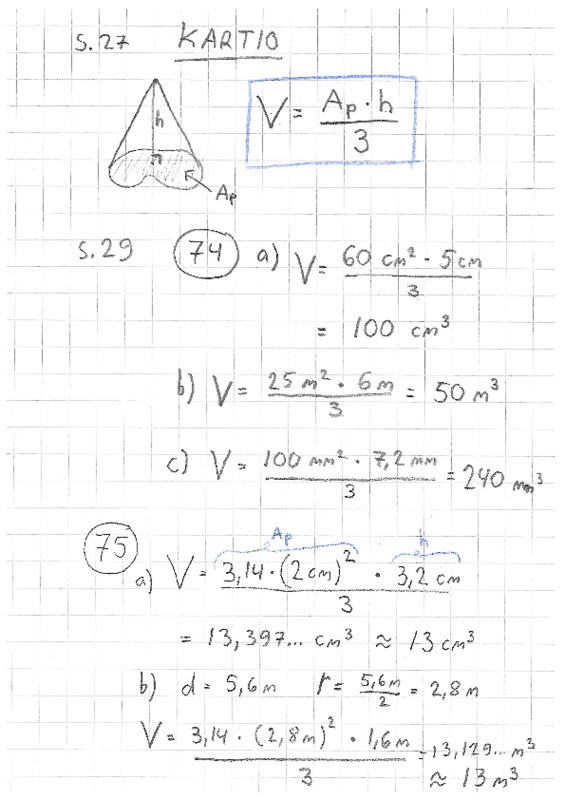 S.27 KARTIO
h
V = Ap · h / 3
Ap
S.29 74 a) V = 60 cm² · 5 cm / 3
= 100 cm³
b) V = 25 m² · 6 m / 3 = 50 m³
c) V = 100 mm² · 7,2 mm / 3 = 240 mm³
75
Ap h
a) V = 3,14 · (2 cm)² · 3,2 cm / 3
= 13,397... cm³ ≈ 13 cm³
b) d = 5,6 m r = 5,6 m / 2 = 2,8 m
V = 3,14 · (2,8 m)² · 1,6 m / 3 = 13,129... m³
≈ 13 m³